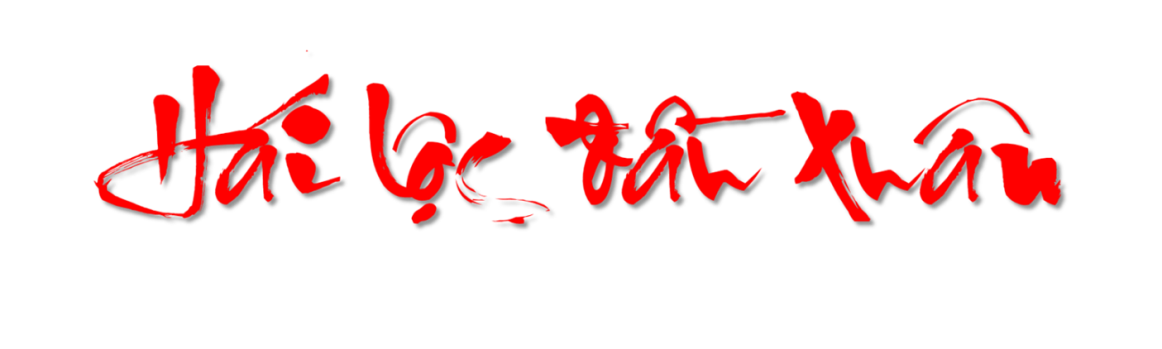 Hái lộc đầu xuân